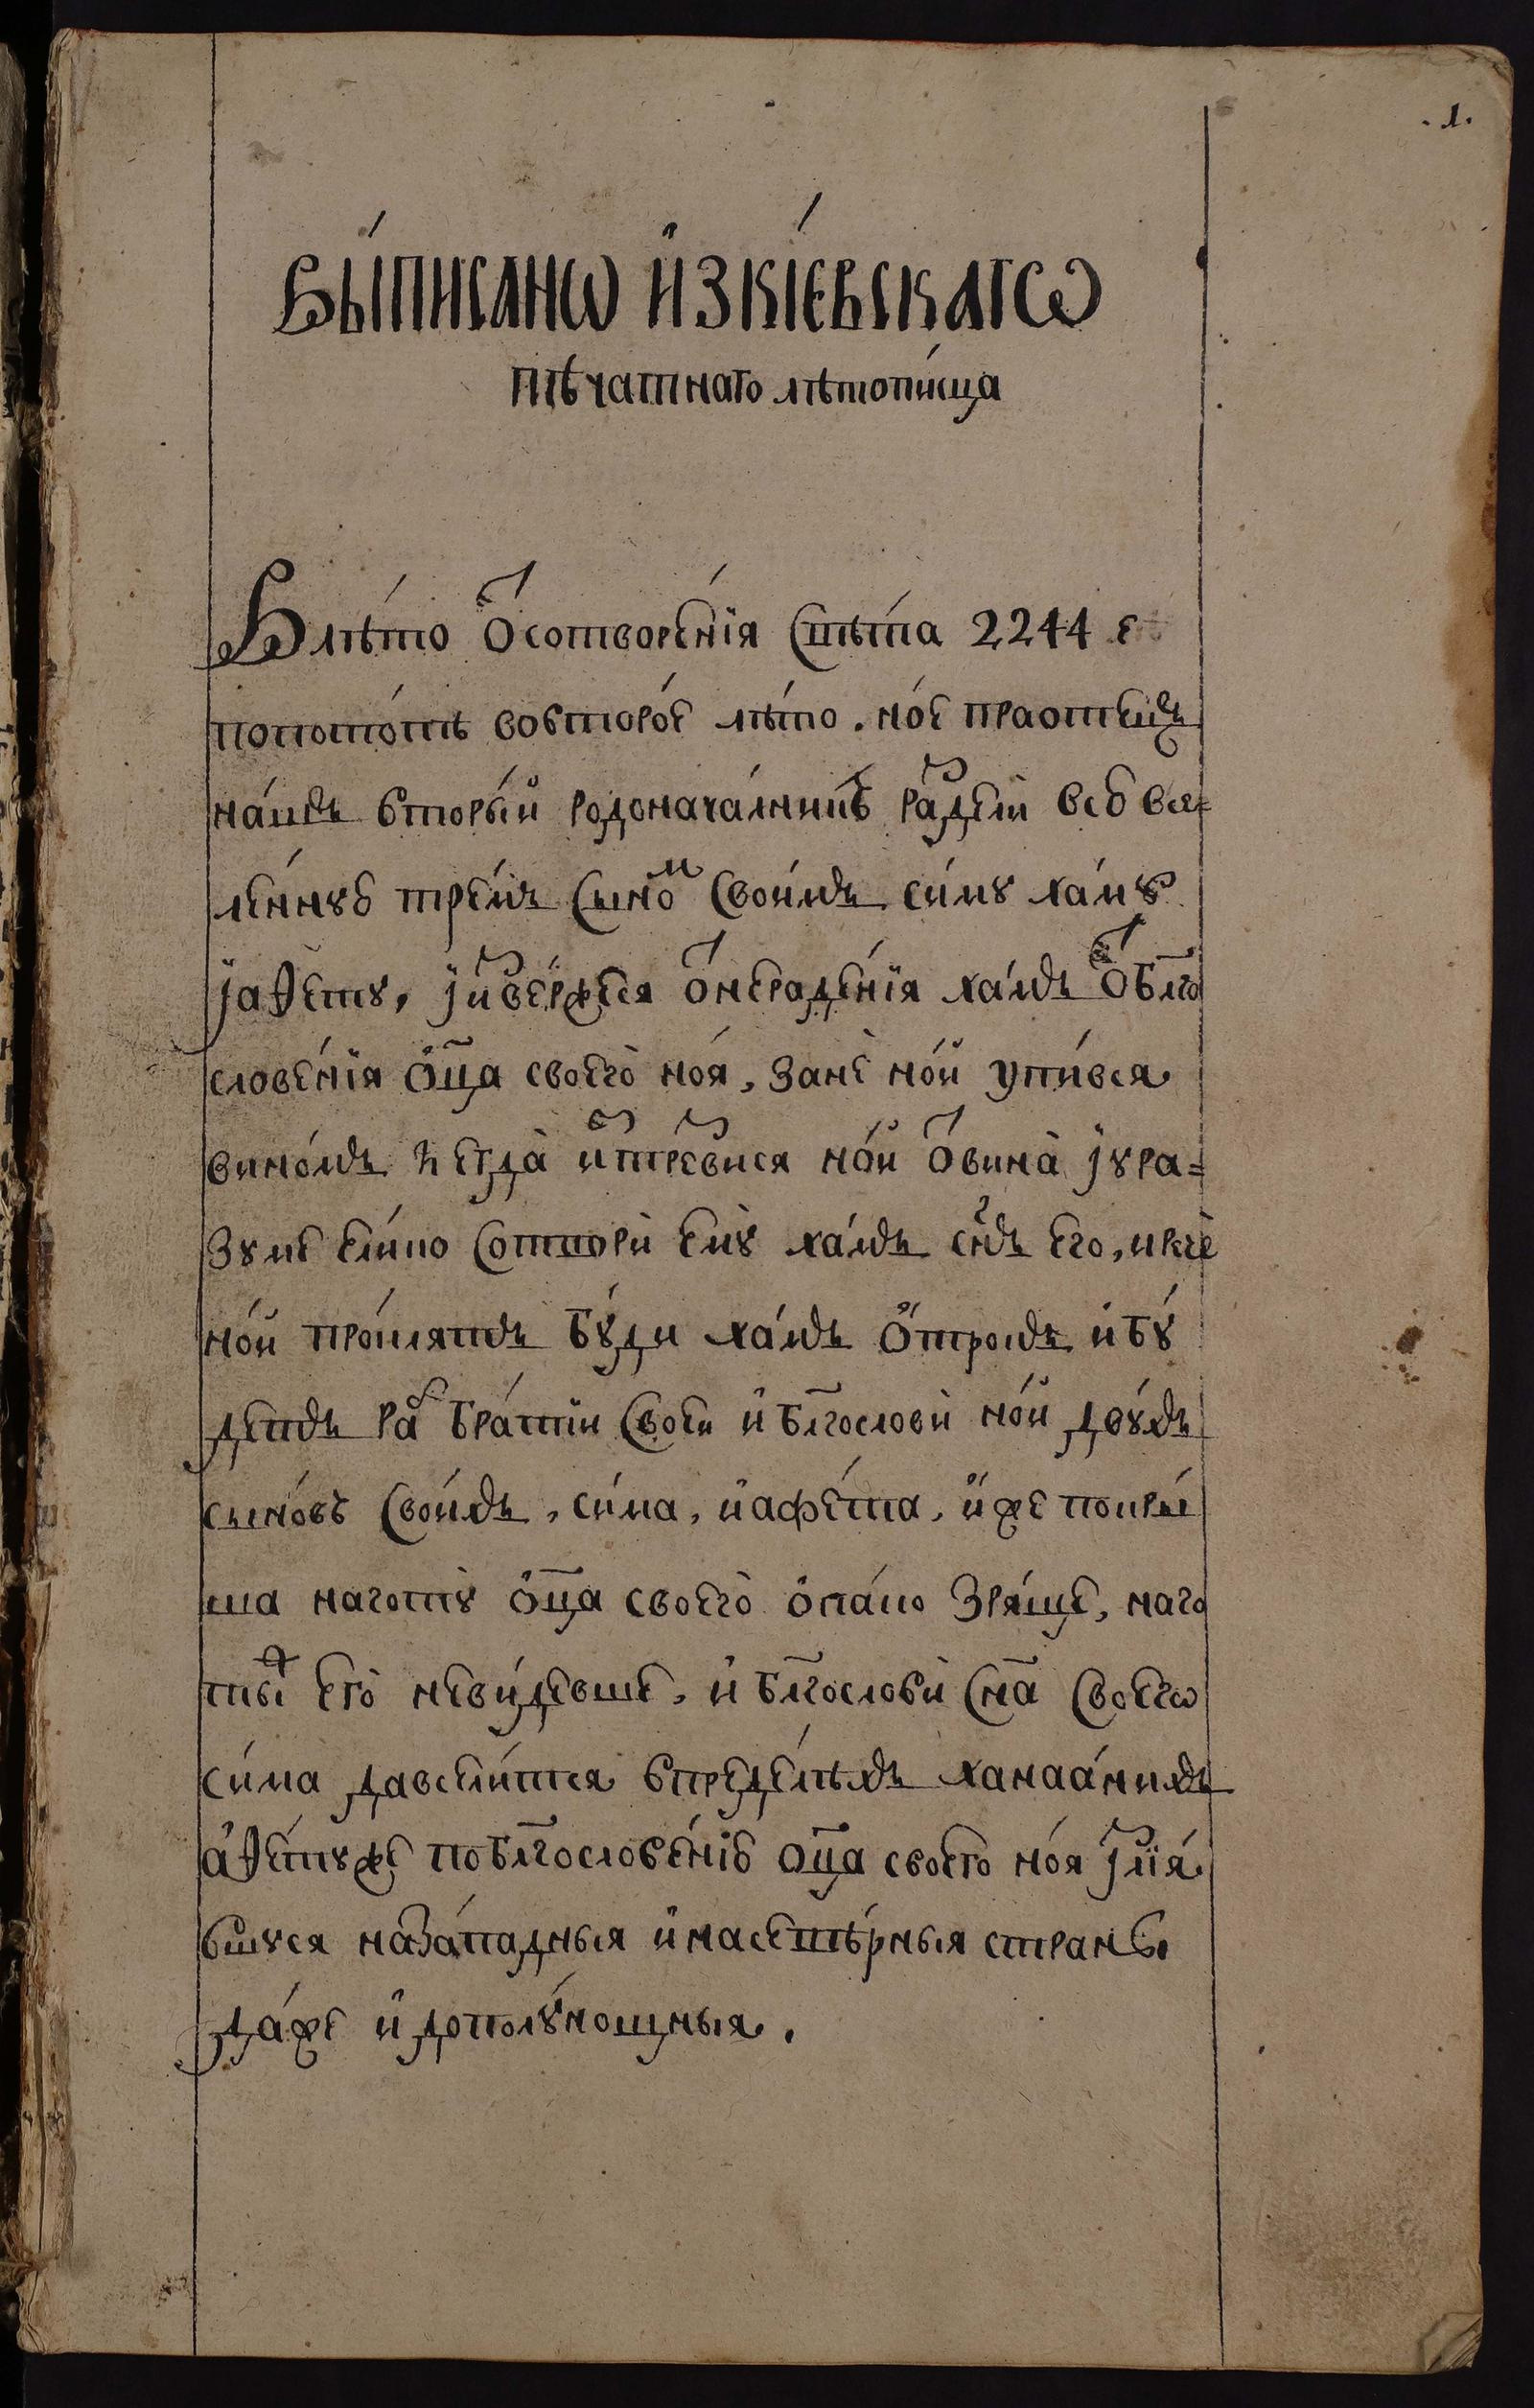 .1.
Вы́писанѡ и҆зкі́евскагѡ
пѣчатнаго лѣтопи́сца
Влѣ́то ѿсотворе́нїя свѣ́та 2244 е
попото́пѣ вовторо́е лѣ́то. но́е праотецъ
на́шъ вторы́й родонача́лникъ раздѣли всю все=
ле́нную тре́мъ сыно́м свои́мъ си́му ха́му
і҆аѳету, і҆изве́ржеся ѿнераде́нїя ха́мъ ѿбл҃го
слове́нїя ѻ҆ц҃а своего̀ но́я, занѐ но́й упи́вся
вино́мъ и҆ егда̀ и҆стрезви́ся но́й ѿвина̀ і҆ура=
зумѐ ели́ко сотворѝ ему̀ ха́мъ сн҃ъ его, иречѐ
но́й про́клятъ бу́ди ха́мъ ѻ҆́трокъ и҆бу́
детъ раб бра́тїи своеи и҆бл҃гословѝ но́й дву́хъ
сыно́въ свои́хъ, си́ма, и҆афе́та, и҆́же покры́
ша наготу̀ ѻ҆ц҃а своего̀ ѻ҆па́ко зря́ще, наго
ты же его̀ неви́девше, и҆ бл҃гословѝ сн҃а своегѡ
си́ма давсели́тся впреде́лѣхъ ханаа́нихъ
а҆ѳе́туже побл҃гослове́нїю ѻц҃а своего но́я і҆злия́
вшуся наза́падныя и҆насѣвѣ́рныя страны
да́же и҆ дополу́нощныя.